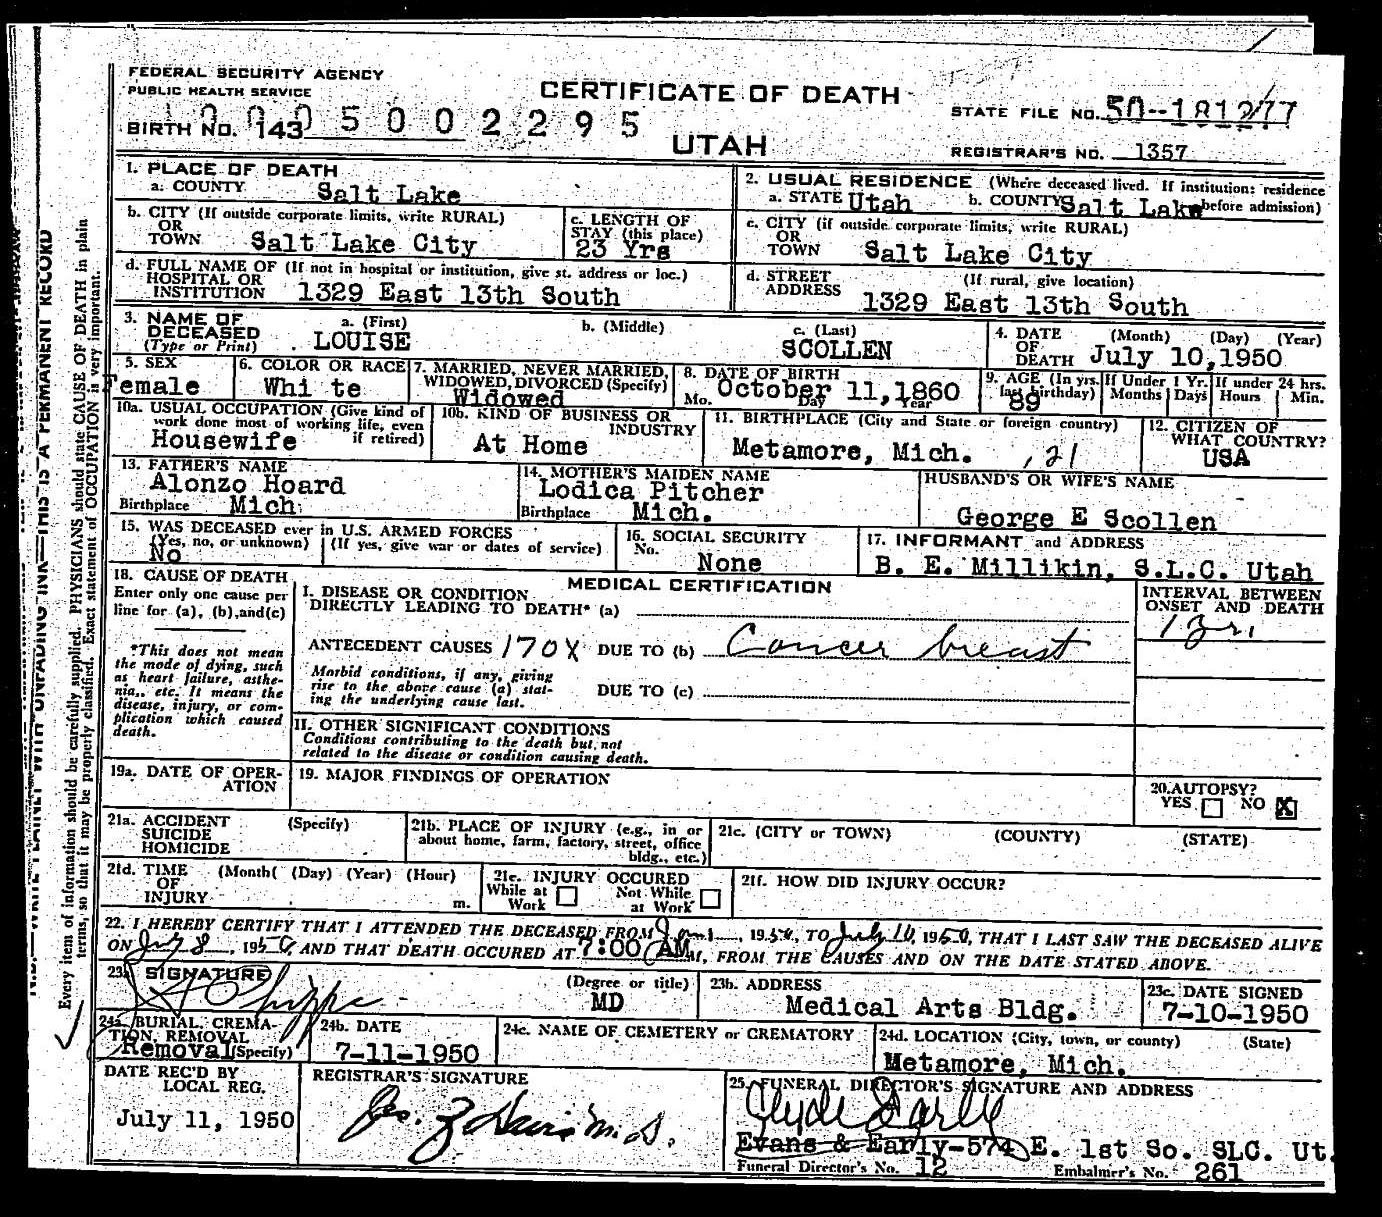 FEDERAL SECURITY AGENCY
PUBLIC HEALTH SERVICE
CERTIFICATE OF DEATH
STATE FILE NO. 50--181277
BIRTH NO. 143 05002295
UTAH
REGISTRAR'S NO. 1357
1. PLACE OF DEATH
a. COUNTY Salt Lake
2. USUAL RESIDENCE (Where deceased lived. If institution: residence before admission)
a. STATE Utah b. COUNTY Salt Lake
b. CITY (If outside corporate limits, write RURAL)
OR
TOWN Salt Lake City
c. LENGTH OF
STAY (this place)
23 Yrs
c. CITY (if outside corporate limits, write RURAL)
OR
TOWN Salt Lake City
d. FULL NAME OF (If not in hospital or institution, give st. address or loc.)
HOSPITAL OR
INSTITUTION 1329 East 13th South
d. STREET (If rural, give location)
ADDRESS 1329 East 13th South
3. NAME OF
DECEASED
(Type or Print)
a. (First) b. (Middle) c. (Last)
LOUISE SCOLLEN
4. DATE (Month) (Day) (Year)
OF
DEATH July 10,1950
5. SEX
Female
6. COLOR OR RACE
Whi te
7. MARRIED, NEVER MARRIED,
WIDOWED, DIVORCED (Specify)
Widowed
8. DATE OF BIRTH
Mo. October Day 11,1860 Year
9. AGE (In yrs. last birthday)
89
If Under 1 Yr.
Months Days
If under 24 hrs.
Hours Min.
10a. USUAL OCCUPATION (Give kind of
work done most of working life, even
if retired)
Housewife
10b. KIND OF BUSINESS OR
INDUSTRY
At Home
11. BIRTHPLACE (City and State or foreign country)
Metamore, Mich. , 21
12. CITIZEN OF
WHAT COUNTRY?
USA
13. FATHER'S NAME
Alonzo Hoard
Birthplace Mich
14. MOTHER'S MAIDEN NAME
Lodica Pitcher
Birthplace Mich.
HUSBAND'S OR WIFE'S NAME
George E Scollen
15. WAS DECEASED ever in U.S. ARMED FORCES
(Yes, no, or unknown) (If yes, give war or dates of service)
No
16. SOCIAL SECURITY
No.
None
17. INFORMANT and ADDRESS
B. E. Millikin, S.L.C. Utah
18. CAUSE OF DEATH
Enter only one cause per
line for (a), (b),and(c)
*This does not mean
the mode of dying, such
as heart failure, asthe-
nia,. etc. It means the
disease, injury, or com-
plication which caused
death.
MEDICAL CERTIFICATION
I. DISEASE OR CONDITION
DIRECTLY LEADING TO DEATH* (a)
INTERVAL BETWEEN
ONSET AND DEATH
1 yr.
ANTECEDENT CAUSES 170X DUE TO (b) Cancer breast
Morbid conditions, if any, giving
rise to the above cause (a) stat-
ing the underlying cause last.
DUE TO (c)
II. OTHER SIGNIFICANT CONDITIONS
Conditions contributing to the death but not
related to the disease or condition causing death.
19a. DATE OF OPER-
ATION
19. MAJOR FINDINGS OF OPERATION
20. AUTOPSY?
YES NO X
21a. ACCIDENT (Specify)
SUICIDE
HOMICIDE
21b. PLACE OF INJURY (e.g., in or
about home, farm, factory, street, office
bldg., etc.)
21c. (CITY or TOWN) (COUNTY) (STATE)
21d. TIME (Month( (Day) (Year) (Hour)
OF
INJURY m.
21e. INJURY OCCURED
While at Work Not While at Work
21f. HOW DID INJURY OCCUR?
22. I HEREBY CERTIFY THAT I ATTENDED THE DECEASED FROM Jan 1, 1950, TO July 10, 1950, THAT I LAST SAW THE DECEASED ALIVE
ON July 8, 1950, AND THAT DEATH OCCURED AT 7:00 AM, FROM THE CAUSES AND ON THE DATE STATED ABOVE.
23a. SIGNATURE (Degree or title)
MD
23b. ADDRESS
Medical Arts Bldg.
23c. DATE SIGNED
7-10-1950
24a. BURIAL, CREMA-
TION, REMOVAL
Removal (Specify)
24b. DATE
7-11-1950
24c. NAME OF CEMETERY or CREMATORY
24d. LOCATION (City, town, or county) (State)
Metamore, Mich.
DATE REC'D BY
LOCAL REG.
July 11, 1950
REGISTRAR'S SIGNATURE
25. FUNERAL DIRECTOR'S SIGNATURE AND ADDRESS
Clyde Early
Evans & Early-574 E. 1st So. SLC. Ut.
Funeral Director's No. 12 Embalmer's No. 261
Every item of information should be carefully supplied. PHYSICIANS should state CAUSE OF DEATH in plain
terms, so that it may be properly classified. Exact statement of OCCUPATION is very important.
WITH UNFADING INK—THIS IS A PERMANENT RECORD